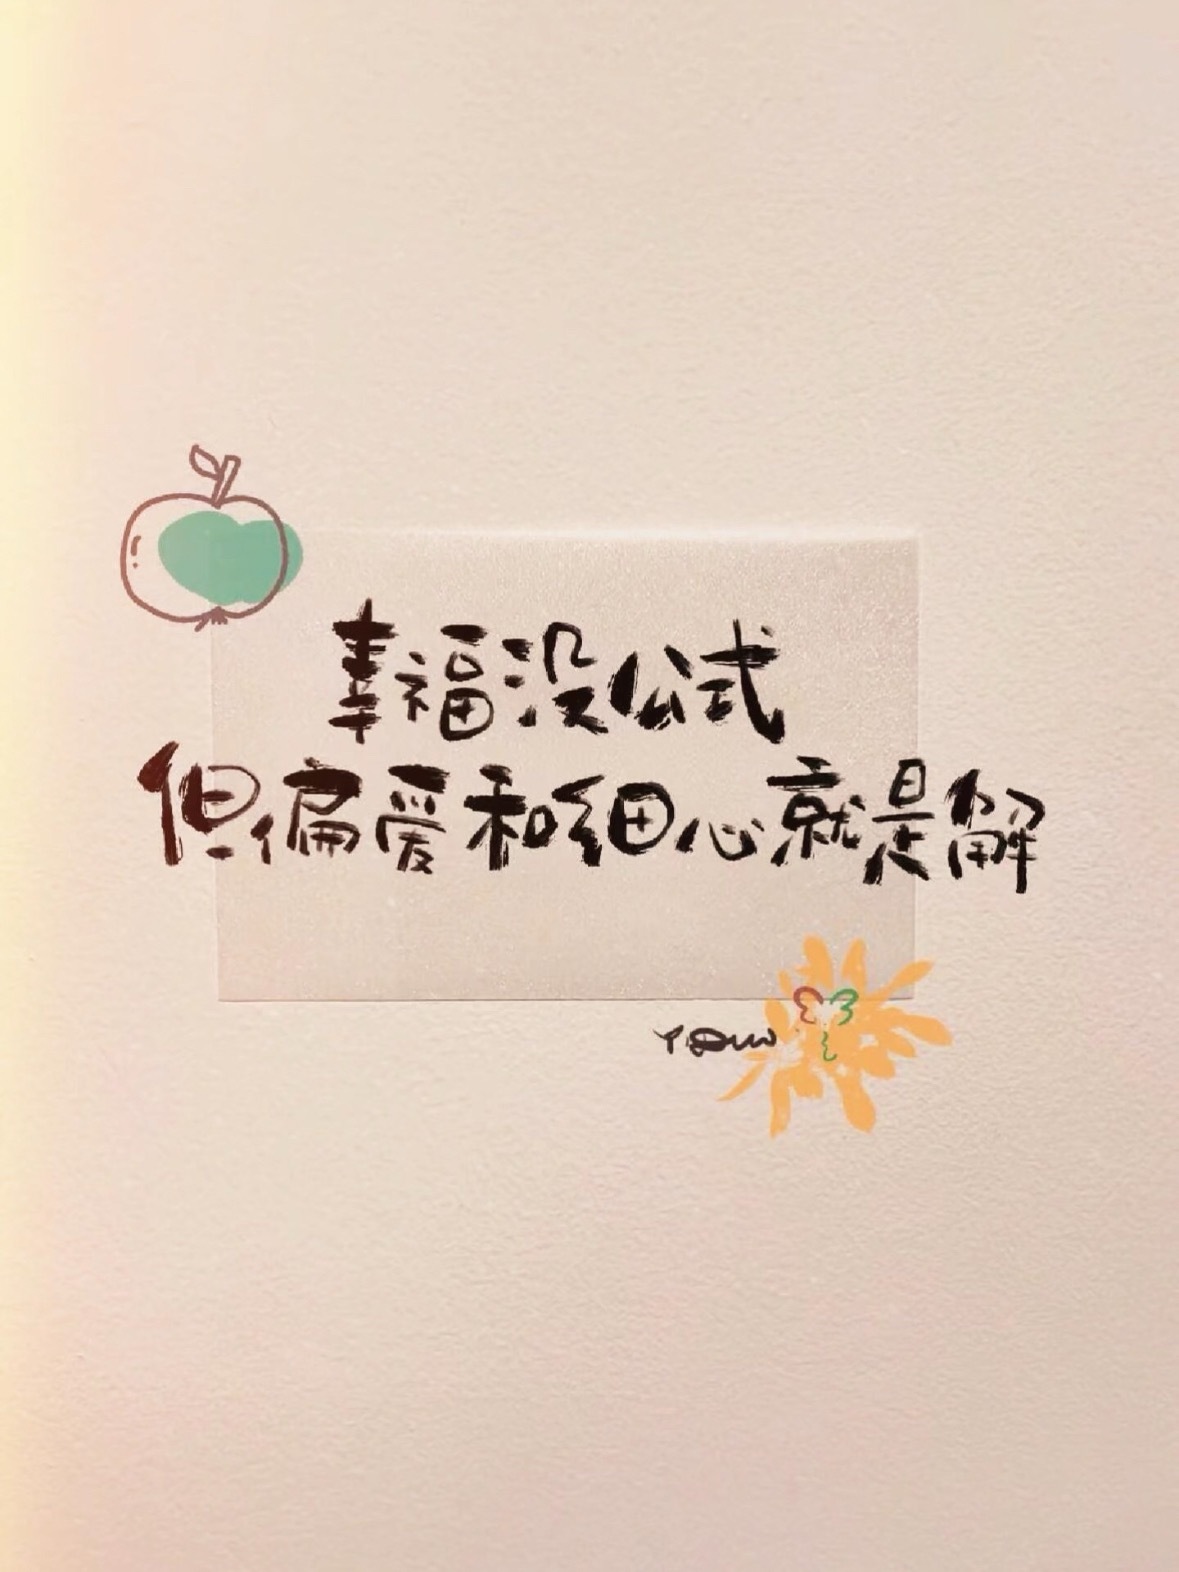 幸福没公式
但偏爱和细心就是解